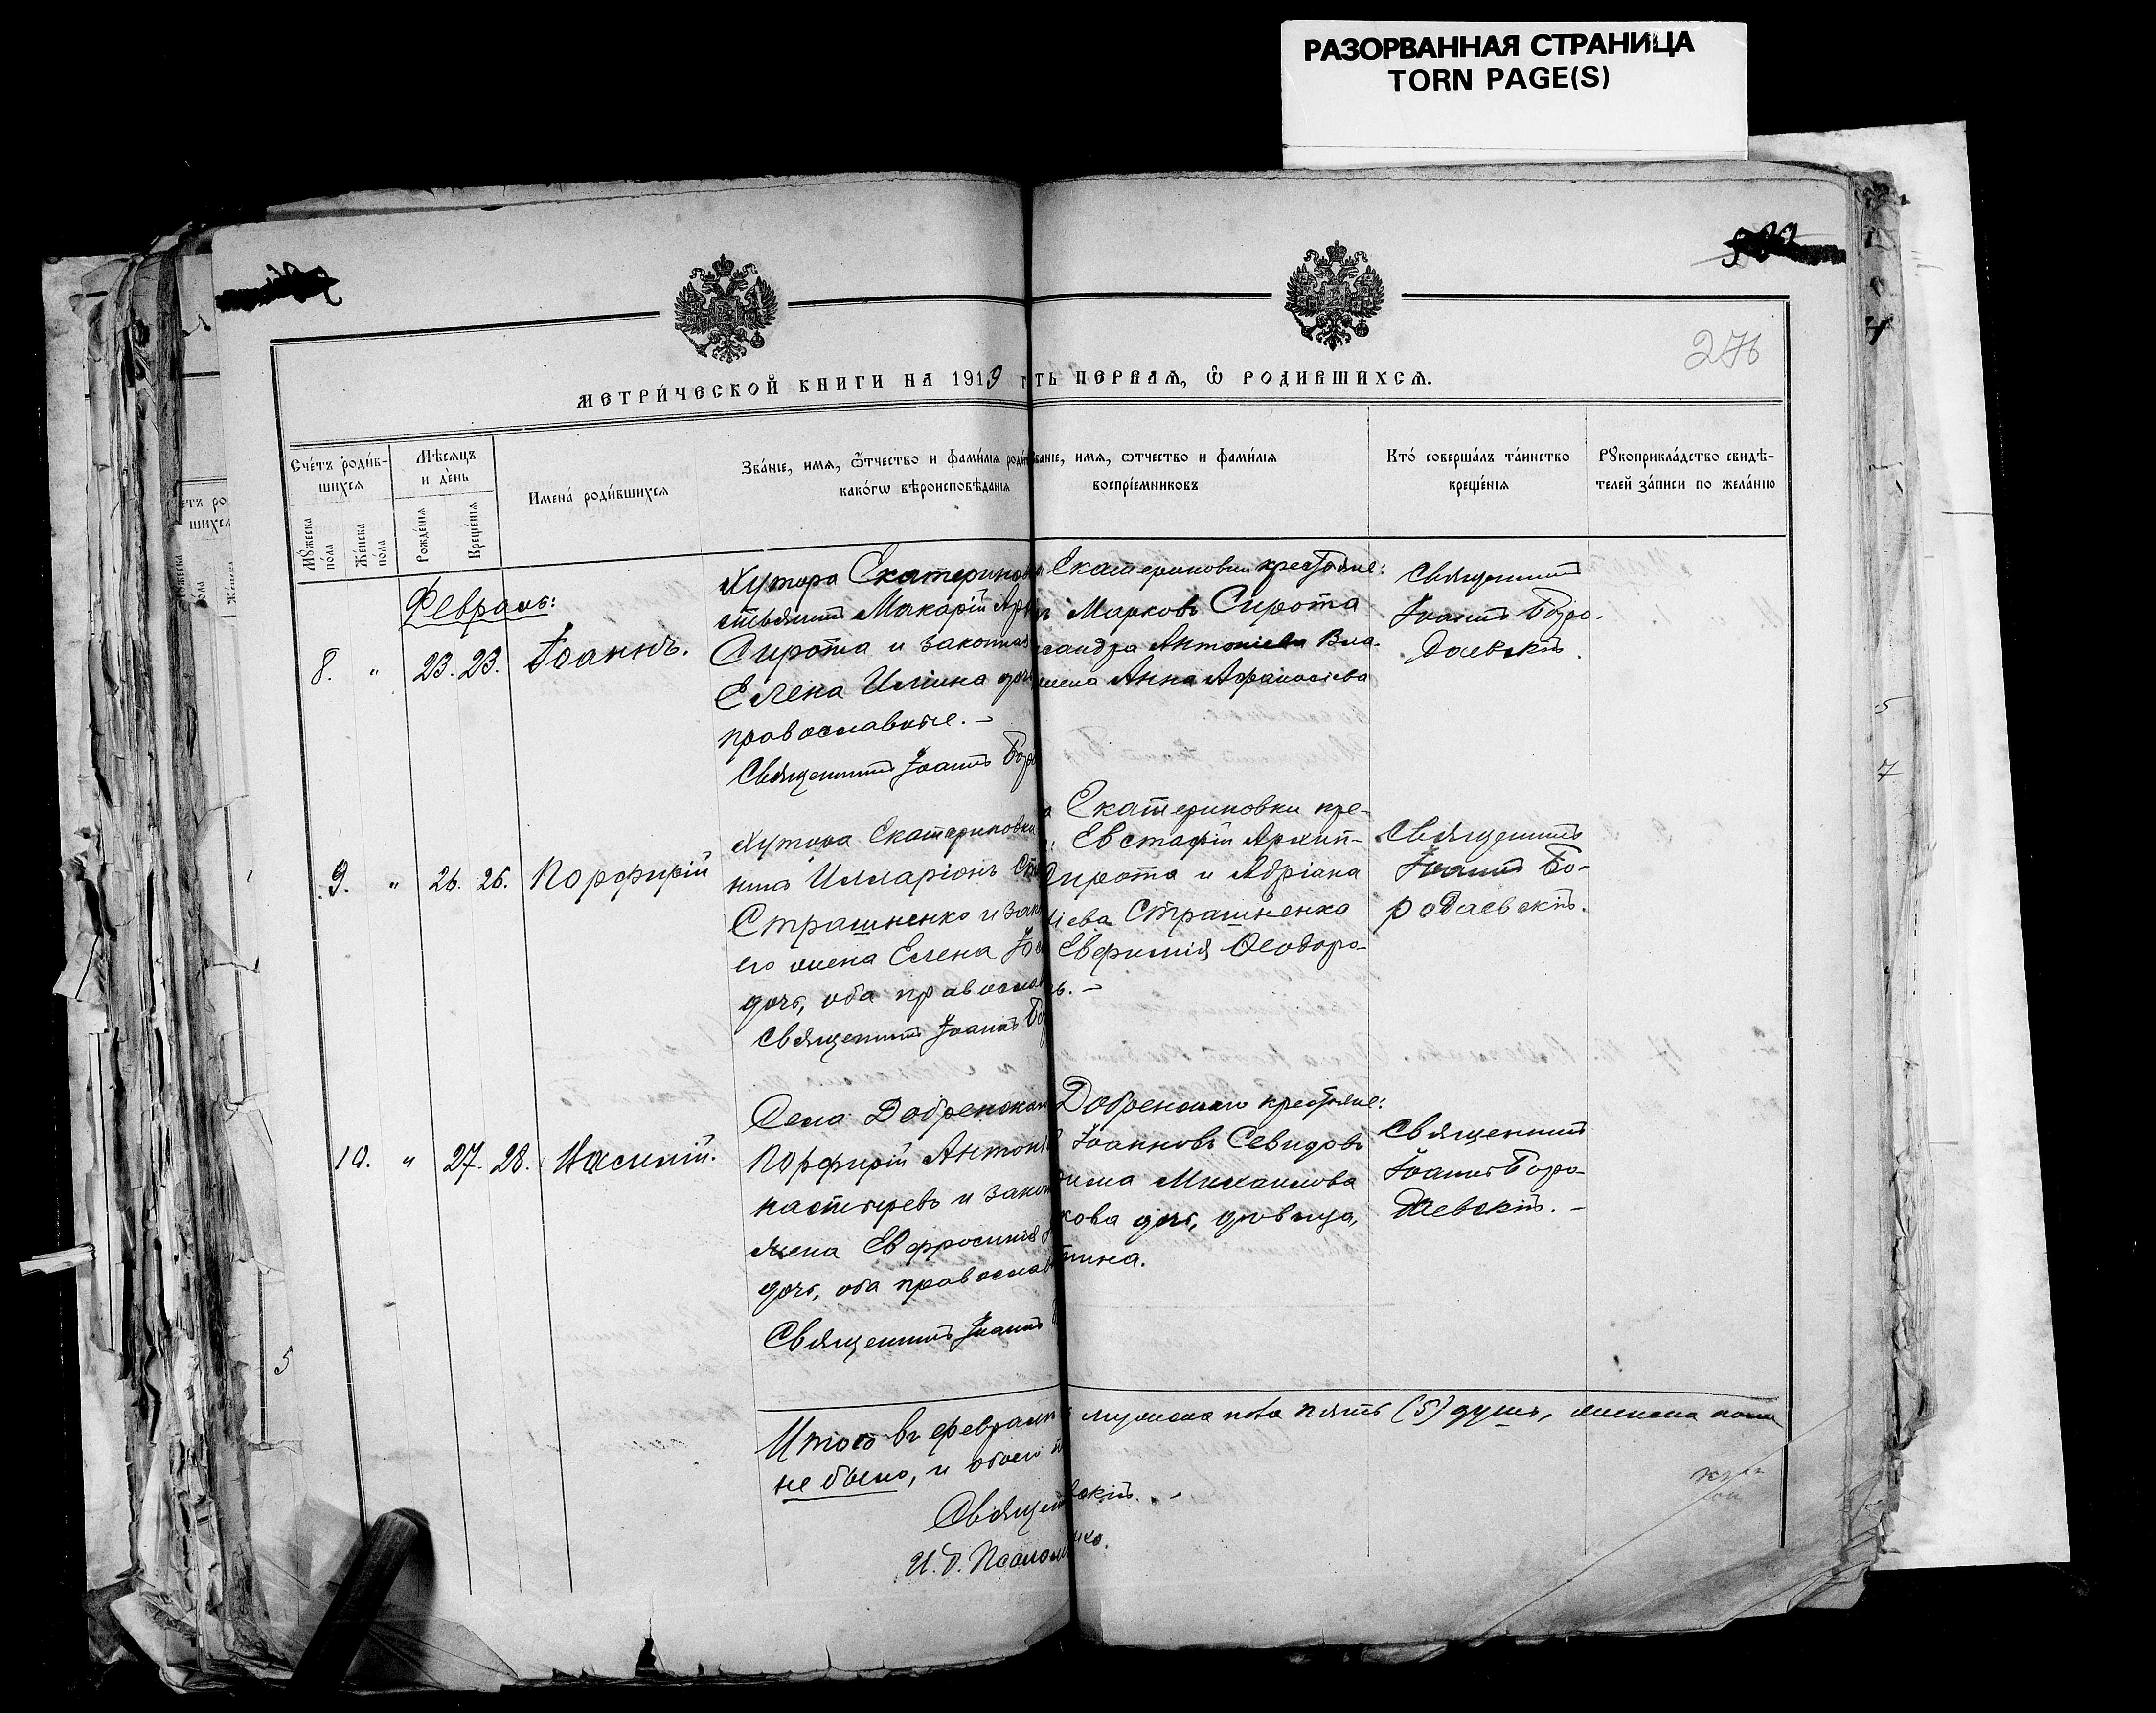 РАЗОРВАННАЯ СТРАНИЦА
TORN PAGE(S)
276
МЕТРИ́ЧЕСКОЙ КНИГИ НА 1919
ТЬ ПЕРВАЯ, Ѿ РОДИВШИХСЯ.
Сче́тъ роди́в-
шихся
Мꙋ́жеска по́ла
Же́нска по́ла
Мѣ́сяцъ
и де́нь
Рожде́нїя
Креще́нїя
Имена́ роди́вшихся
Зва́нїе, имя, ѻ҆́тчество и фами́лїя роди
како́гѡ вѣроисповѣ́данїя
ванїе, имя, ѻтчество и фами́лїя
воспрїе́мниковъ
Кто́ соверша́лъ та́инство
креще́нїя
Рꙋкоприкла́дство свидѣ́-
телей за́писи по жела́нїю
Февраль:
8. " 23. 23. Іоаннъ.
Хутора Екатериновк
стьянинъ Макарій
Сирота и законная
Елена Иліина доч
православные. –
Священникъ Іоаннъ Боро
Екатериновки крестьяне:
Марковъ Сирота
сандра Антоніева Вла-
жена Анна Афанасіева
Священникъ
Іоаннъ Боро-
даевскій.
9. " 26. 26. Порфирій
Хутора Екатериновки
нинъ Илларіонъ
Страшненко и зак
его жена Елена
дочь, оба правосла
Священникъ Іоаннъ Бо
Екатериновки кре-
Евстафій Архип-
Сирота и Адріана
іева Страшненко
Евфимія Ѳеодоро-
ь. –
Священникъ
Іоаннъ Бо-
родаевскій.
10. " 27. 28. Василій.
Села Добренькаго
Порфирій Антон
и закон
жена Евфросинія
дочь, оба православ
Священникъ Іоаннъ
Добренькаго крестьяне:
Іоанновъ Севидовъ
Михаилова
кова дочь, дѣвица,
Священникъ
Іоаннъ Боро-
даевскій. –
Итого въ февралѣ мужеска пола пять (5) душъ, женска пола
не было, и обоего
Священ вскій. –
И. д. Псалом ико.